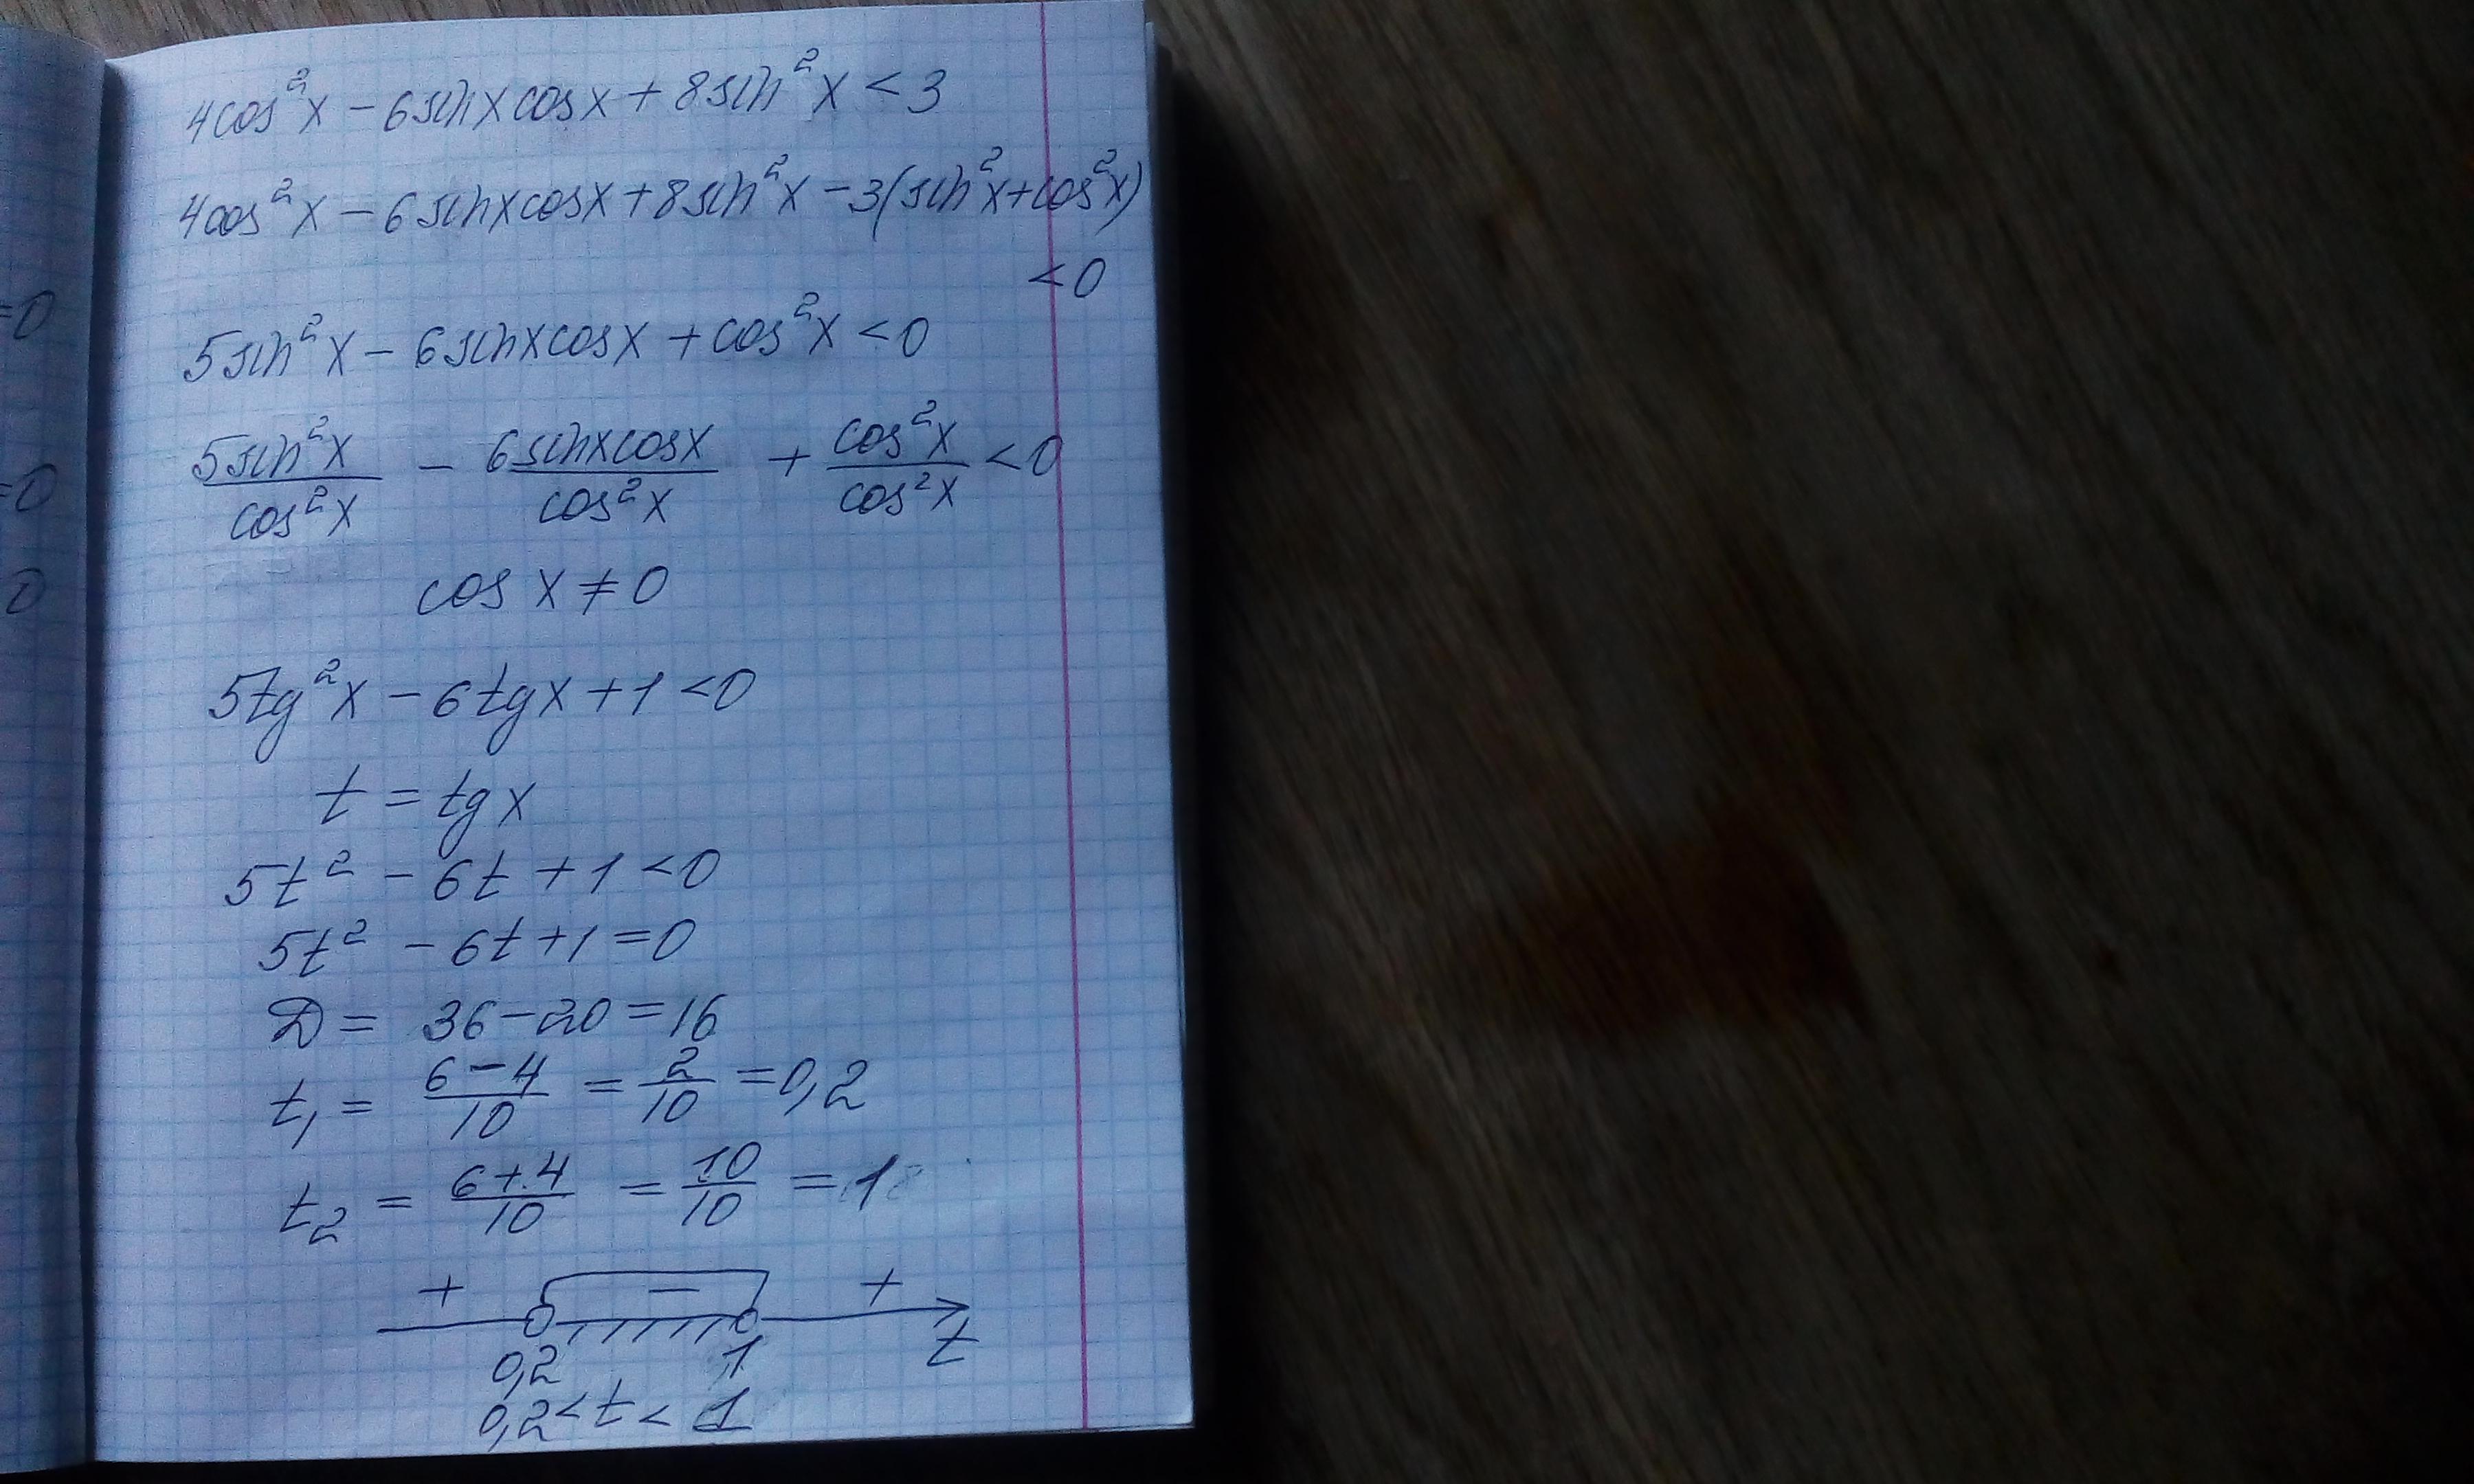 =0
=0
0
4cos²x − 6sinxcosx + 8sin²x < 3
4cos²x − 6sinxcosx + 8sin²x − 3(sin²x + cos²x)
< 0
5sin²x − 6sinxcosx + cos²x < 0
5sin²x/cos²x − 6sinxcosx/cos²x + cos²x/cos²x < 0
cos x ≠ 0
5tg²x − 6tgx + 1 < 0
t = tgx
5t² − 6t + 1 < 0
5t² − 6t + 1 = 0
D = 36 − 20 = 16
t₁ = (6 − 4)/10 = 2/10 = 0,2
t₂ = (6 + 4)/10 = 10/10 = 1
+ − +
0,2 1 t
0,2 < t < 1